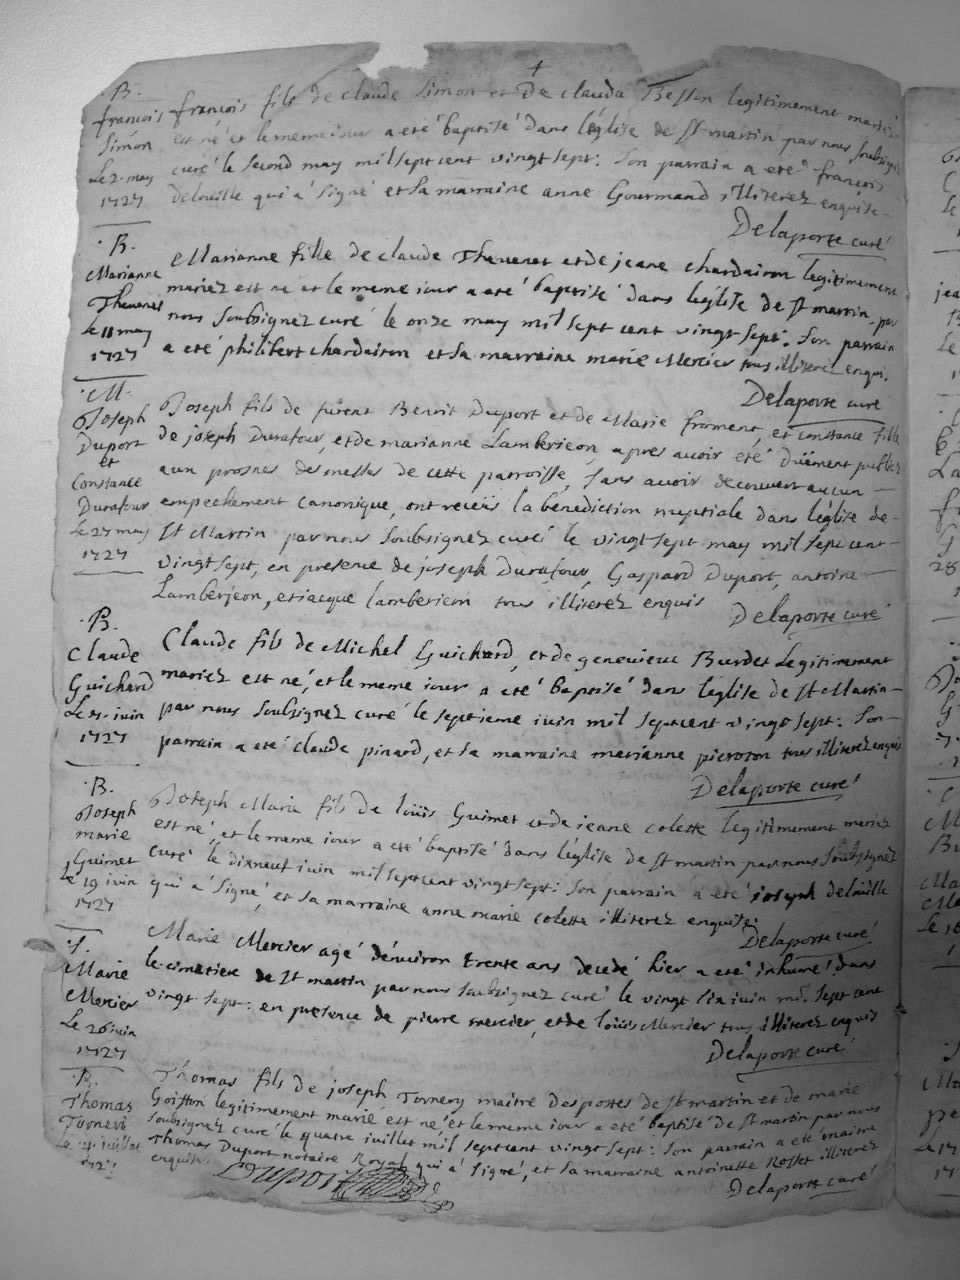 B.
françois
Simon
Le 2. may
1727
françois fils de claude Simon et De clauda Besson legitimement mariez
est né et le meme iour a eté baptisé dans l'église de St martin par nous soubsignez
curé le second may mil sept cent vingt sept: son parrain a eté françois
delouille qui a signé et sa marraine anne Gourmand illiterez enquise
Delaporte curé
B.
Marianne
Thevenet
Le 11 may
1727
Marianne fille de claude Thevenet et de jeane chardairon legitimement
mariez est né et le meme iour a eté baptisé dans léglise de St martin par
nous soubsignez curé le onze may mil sept cent vingt sept: son parrain
a eté philibert chardairon et sa marraine marie Mercier tous illiterez enqui.
Delaporte curé
M.
Joseph
Duport
et
Constance
Durafour
Le 27 may
1727
Joseph fils de furent Benoit Duport et de Marie froment, et constance fille
de joseph Durafour, et de marianne Lamberjeon, apres avoir eté düement publiez
aux prosnes des messes de cette parroisse, sans avoir decouvert aucun
empechement canonique, ont receüs la benediction nuptiale dans l'église de
St Martin par nous soubsignez curé le vingt sept may mil sept cent
vingt sept, en presence de joseph Durafour, Gaspard Duport, antoine
Lamberjeon, et iacque lamberieon tous illiterez enquis
Delaporte curé
B.
Claude
Guichard
Le 7. iuin
1727
Claude fils de Michel Guichard, et de genevieve Burdet Legitimement
mariez est né, et le meme iour a eté baptisé dans l'église de St Martin
par nous soubsignez curé le septieme iuin mil sept cent vingt sept: son
parrain a eté claude pinard, et sa marraine marianne pieroton tous illiterez enquis
Delaporte curé
B.
Joseph
marie
Guimet
Le 19 iuin
1727
Joseph Marie fils de loüis Guimet et de jeane colette legitimement mariez
est né, et le meme iour a eté baptisé dans l'église de St martin par nous soubsignez
curé le dixneuf iuin mil sept cent vingt sept: son parrain a eté ioseph delouille
qui a signé, et sa marraine anne marie colette illiterez enquise
Delaporte curé
S.
Marie
Mercier
Le 26 iuin
1727
Marie Mercier agé d'environ trente ans decedé hier a eté inhumé dans
le cimetiere de St martin par nous soubsignez curé le vingt six iuin mil sept cent
vingt sept: en presence de pierre mercier, et de loüis Mercier tous illiterez enquis
Delaporte curé
B.
Thomas
Tornery
Le 4 iuillet
1727
Thomas fils de joseph Tornery maitre des postes de St martin et de marie
Goiffon legitimement marié est né, et le meme iour a eté baptisé de St martin par nous
soubsignez curé le quatre iuillet mil sept cent vingt sept: son parrain a eté maitre
Thomas Duport notaire Royal qui a signé, et sa marraine antoinette Rosset illiterez
enquise.
Duport
Delaporte curé